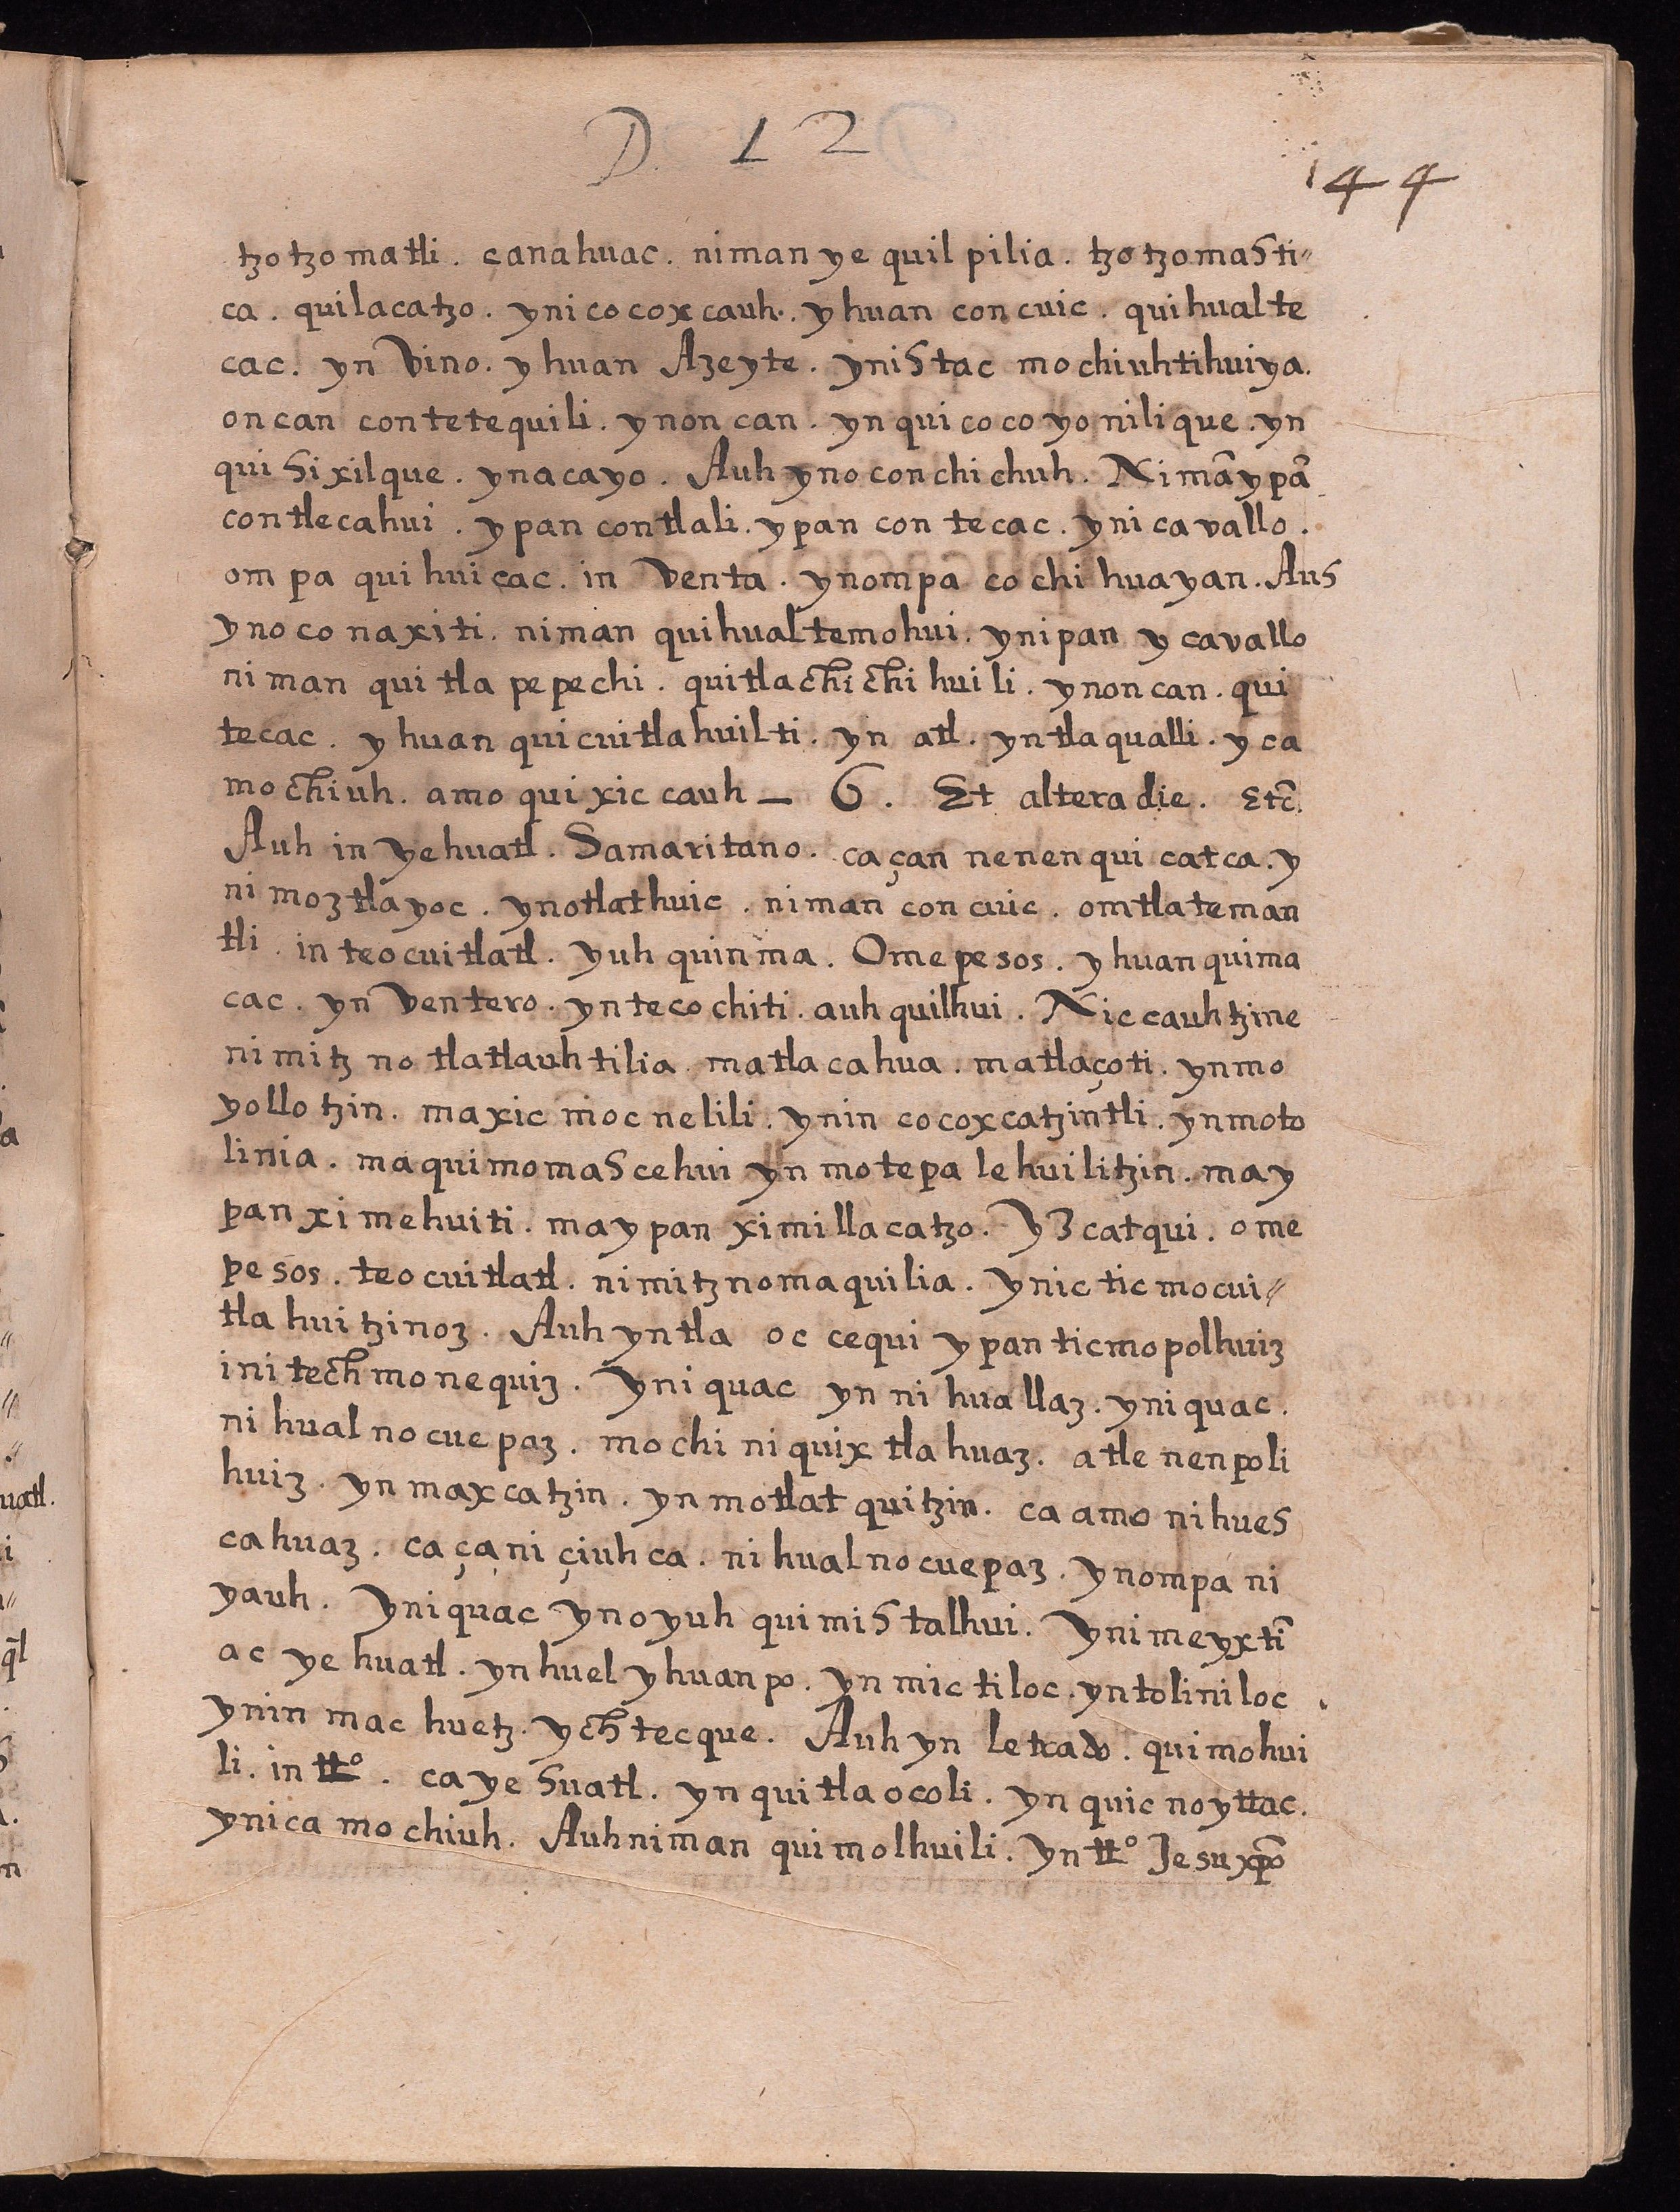 D. 12
144
tzotzomatli. canahuac. niman ye quil pilia. tzotzomasti=
ca. quilacatzo. ynicocoxcauh. yhuan concuic. quihualte
cac. yn Vino. yhuan Azeyte. ynistac mochiuhtihuiya.
oncan contetequili. ynoncan. yn quicocoyonilique. yn
quisixilque. ynacayo. Auh ynoconchichuh. Nimã ypã
contlecahui. ypan contlali. ypan contecac. ynicavallo.
ompa quihuicac. in Venta. ynompa cochihuayan. Aus
ynoconaxiti. niman quihualtemohui. ynipan ycavallo
niman quitlapepechi. quitlachichihuili. ynoncan. qui
tecac. yhuan quicuitlahuilti. yn atl. yntlaqualli. yca
mochiuh. amo quixiccauh — 6. Et altera die. Etc.
Auh in yehuatl. Samaritano. caçan nenenqui catca. y
nimoztlayoc. ynotlathuic. niman concuic. omtlateman
tli. in teocuitlatl. yuhquinma. Ome pesos. yhuan quima
cac. yn Ventero. yntecochiti. auh quilhui. Niccauhtzine
nimitznotlatlauhtilia. matlacahua. matlaçoti. ynmo
yollotzin. maxicmocnelili. ynin cocoxcatzintli. ynmoto
linia. maquimomascehui yn motepalehuilitzin. may
pan ximehuiti. maypan ximillacatzo. Yzcatqui. ome
pesos. teocuitlatl. nimitznomaquilia. ynic ticmocui=
tlahuitzinoz. Auh yntla oc cequi ypan ticmopolhuiz
initech monequiz. Yniquac yn nihuallaz. yniquac.
nihualnocuepaz. mochi niquixtlahuaz. atle nenpoli
huiz. yn maxcatzin. yn motlatquitzin. ca amo nihues
cahuaz. caçani çiuhca. nihualnocuepaz. ynompa ni
yauh. Yniquac ynoyuh quimistalhui. Ynimeyxtĩ
ac yehuatl. ynhuel yhuanpo. yn mictiloc. yntoliniloc
ynin mac huetz. ychtecque. Auh yn letrado. quimohui
li. in tt.º caye suatl. yn quitlaocoli. yn quicnoyttac.
ynica mochiuh. Auh niman quimolhuili. yn tt.º Jesu xpõ